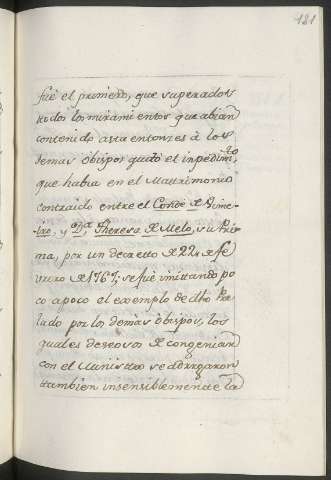 121
fuè el primero, que superados
todos los miramientos que abian
contenido asta entonzes à los
demas Obispos quitò el inpedimto
que habia en el Mattrimonio
contraido entre el Conde de Vimie-
iro, y Da. Theresa de Melo, su Pri-
ma, por un decretto de 22,, de fe
vrero de 1767,, se fuè imittando po
co apoco el exemplo de dho Pre
lado por los demas Obispos, los
quales deseosos de congeniar
con el Ministro se
tambien insensiblemente la